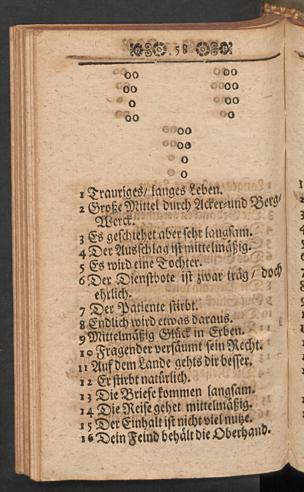 58
1 Trauriges/ langes Leben.
2 Große Mittel durch Acker-und Berg/
Werck.
3 Es geschiehet aber sehr langsam.
4 Der Ausschlag ist mittelmäßig.
5 Es wird eine Tochter.
6 Der Dienstbote ist zwar träg/ doch
ehrlich.
7 Der Patiente stirbt.
8 Endlich wird etwas daraus.
9 Mittelmäßig Glück in Erben.
10 Fragender versäumt sein Recht.
11 Auf dem Lande gehts dir besser.
12 Er stirbt natürlich.
13 Die Briefe kommen langsam.
14 Die Reise gehet mittelmäßig.
15 Der Einhalt ist nicht viel nutze.
16 Dein Feind behält die Oberhand.